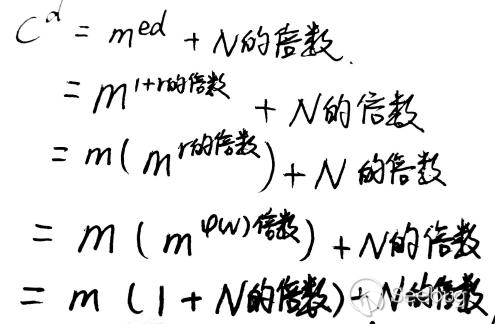 C^d = m^ed + N的倍数.
= m^1+r的倍数 + N的倍数
= m(m^r的倍数) + N的倍数
= m(m^φ(N)倍数) + N的倍数
= m(1+N的倍数)+N的倍数